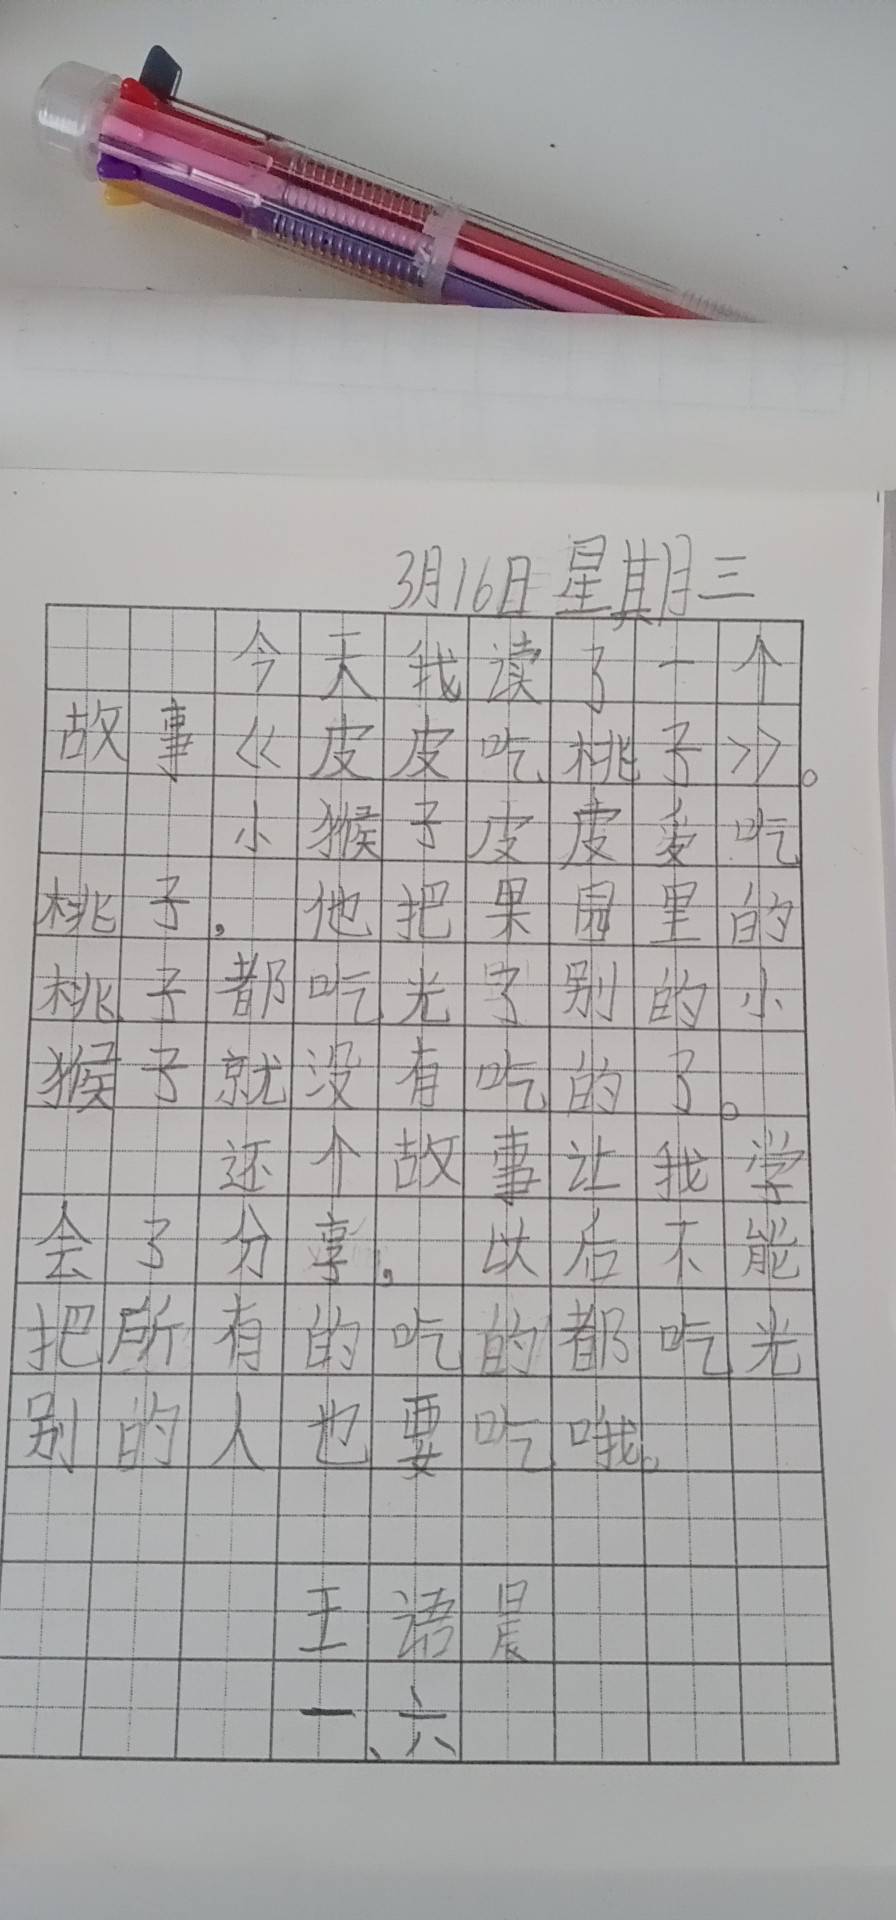 3月16日星期三
今天我读了一个
故事《皮皮吃桃子》。
小猴子皮皮爱吃
桃子，他把果园里的
桃子都吃光了别的小
猴子就没有吃的了。
还个故事让我学
会了分享，以后不能
把所有的吃的都吃光
别的人也要吃哦。
王语晨
一、六